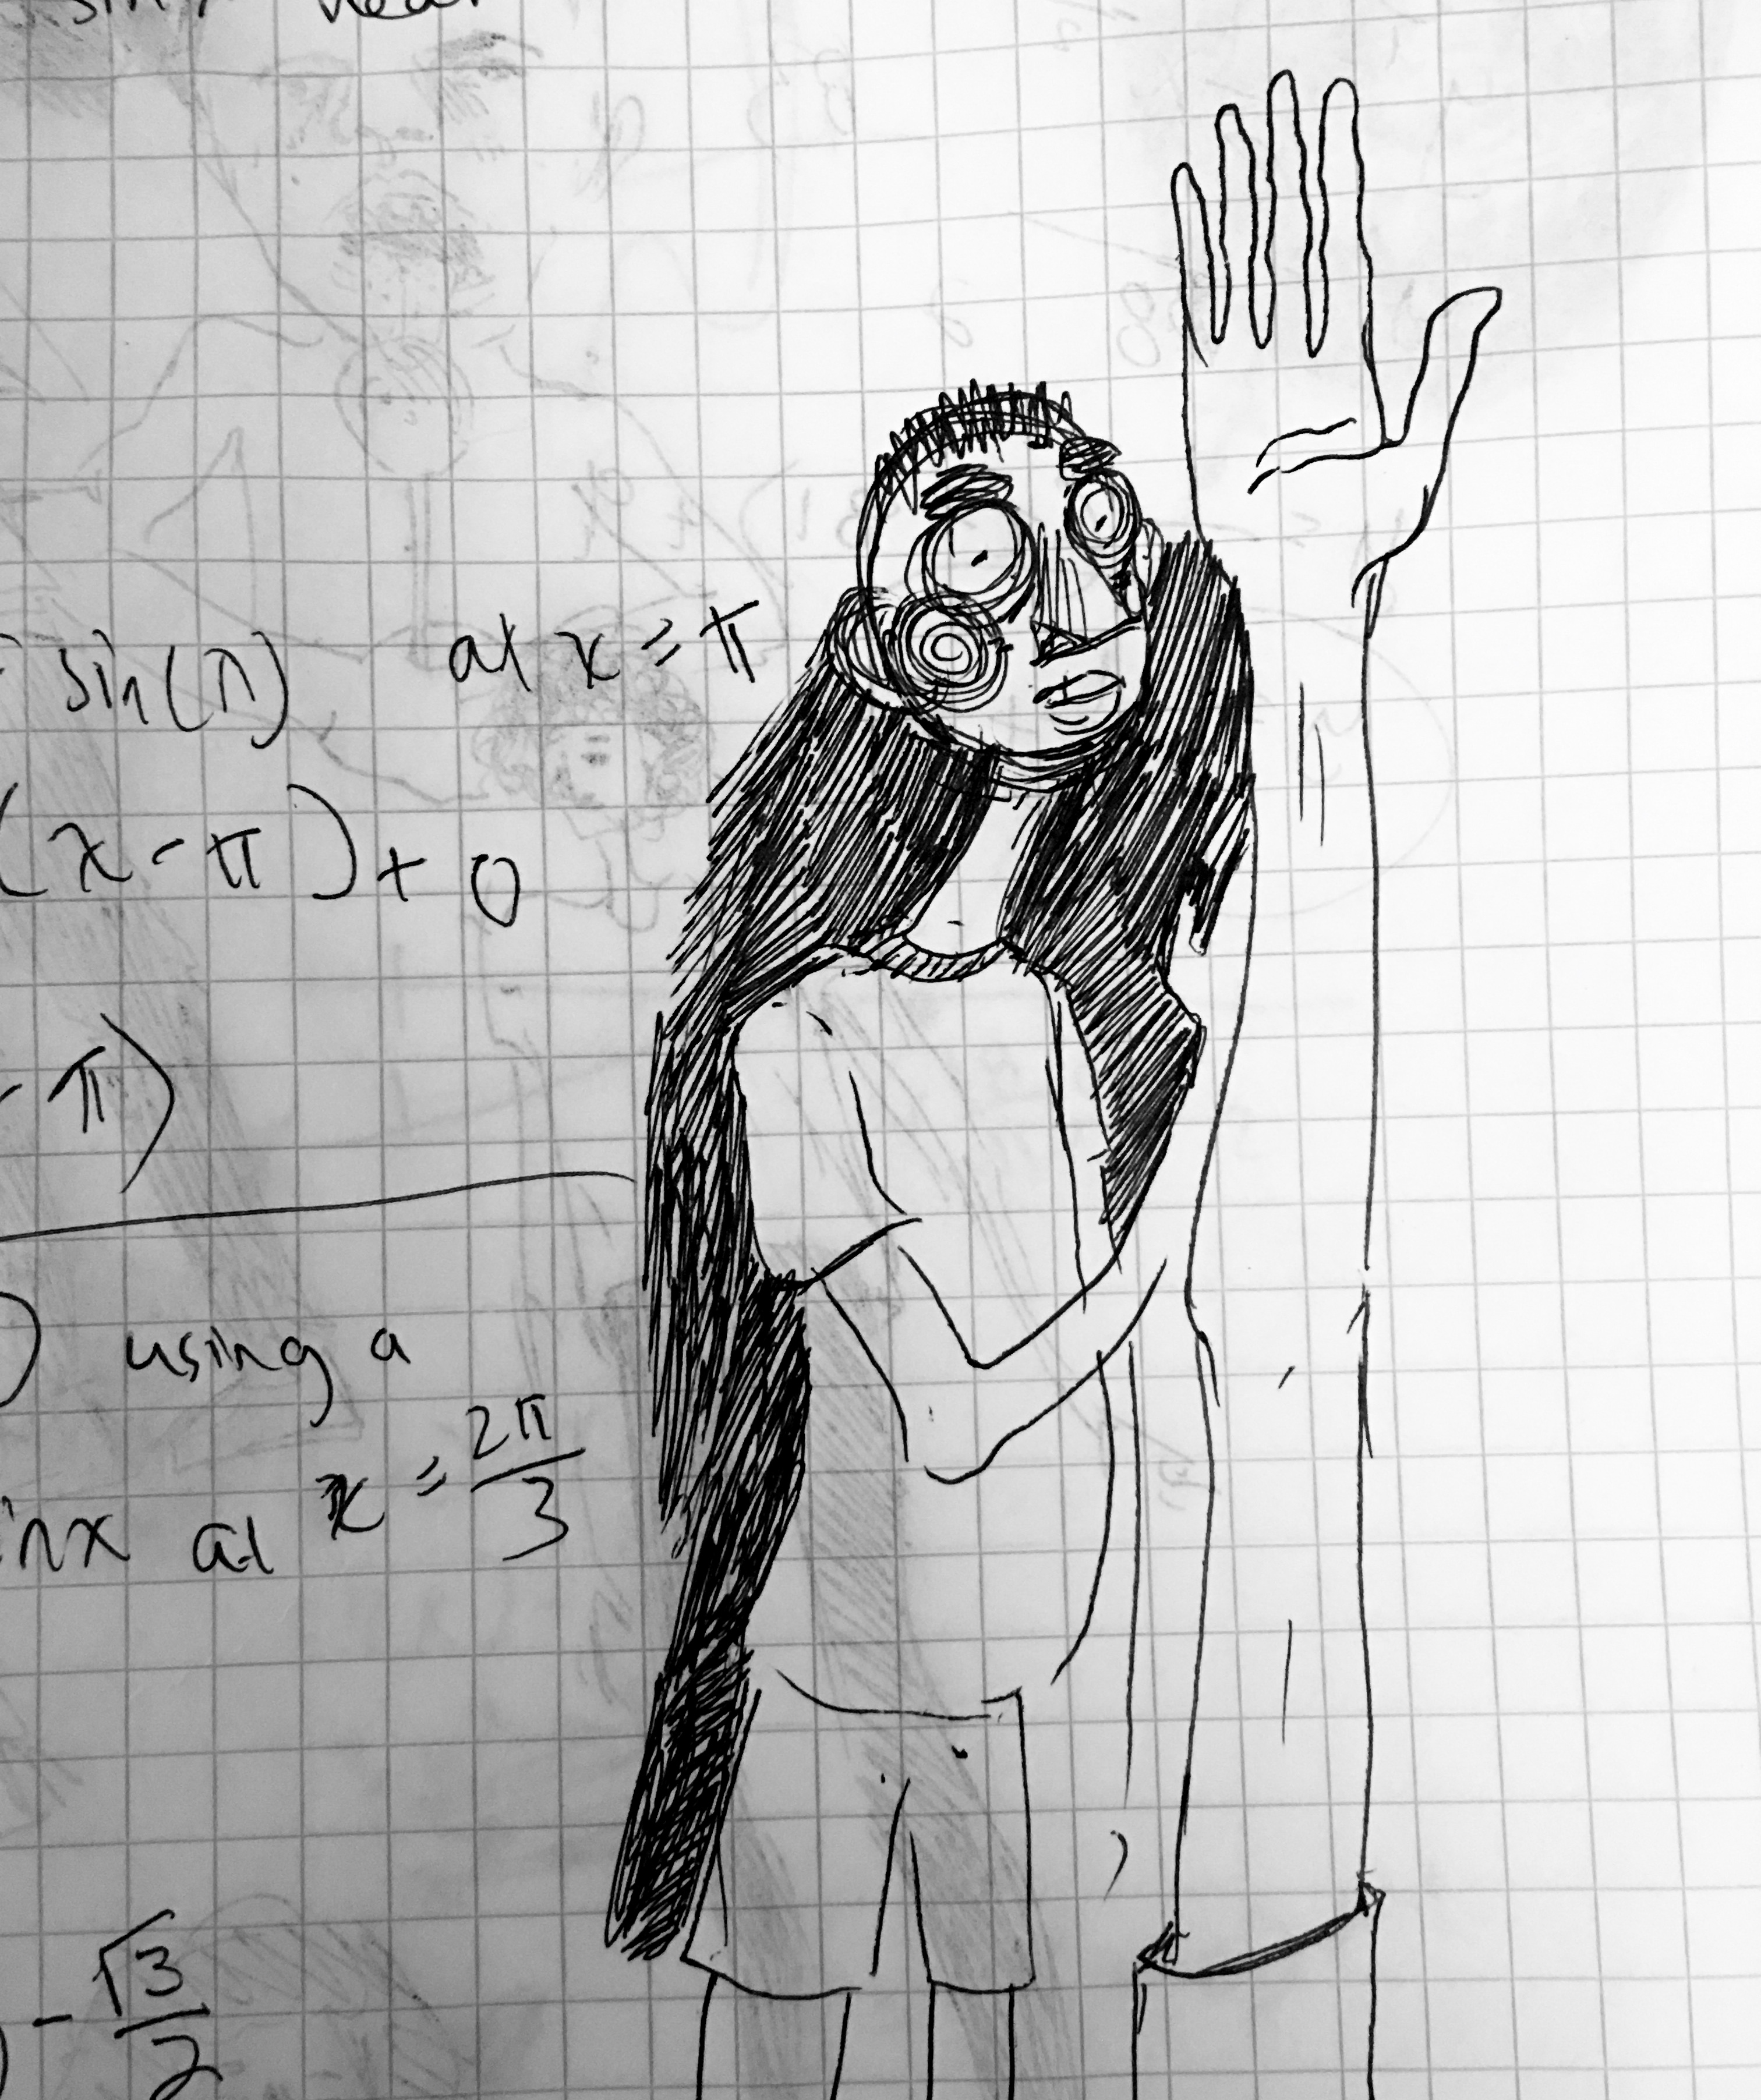 sin(π) at x = π
(x - π) + 0
- π)
) using a
inx at x = 2π/3
) - √3/2